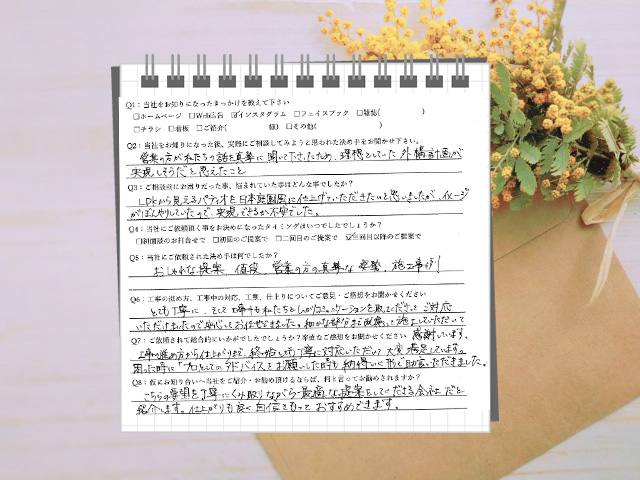 Q1：当社をお知りになったきっかけを教えて下さい
□ホームページ □Web広告 ☑インスタグラム □フェイスブック □雑誌( )
□チラシ □看板 □ご紹介( 様) □その他( )
Q2：当社をお知りになった後、実際にご相談してみようと思われた決め手をお聞かせ下さい。
営業の方が私たちの話を真摯に聞いて下さたため、理想としていた外構計画が
実現しそうだと思えたこと
Q3：ご相談前にお困りだった事、悩まれていた事はどんな事でしたか？
LDKから見えるパティオを日本庭園風に仕上げていただきたいと思いましたが、イメージ
がぼんやりしていたので、実現できるか不安でした。
Q4：当社にご依頼頂く事をお決めになったタイミングはいつでしたでしょうか？
□初面談のお打合せで □初回のご提案で □二回目のご提案で ☑三回目以降のご提案で
Q5：当社にご依頼された決め手は何でしたか？
おしゃれな提案、値段、営業の方の真摯な姿勢、施工事例
Q6：工事の進め方、工事中の対応、工期、仕上りについてご意見・ご感想をお聞かせください
とても丁寧に、そして工事中も私たちとしっかりコミュニケーションを取ってくださって ご対応
いただけましたので安心しておまかせできました。細かな部分まで配慮して施工していただいて
Q7：ご依頼されて総合的にいかがでしたでしょうか？率直なご感想をお聞かせください 感謝しています。
工事の進め方から仕上がりまで、終始とても丁寧に対応いただいて大変満足しています。
困った時に"プロとしてのアドバイス"をお願いした時も納得いく形で助言いただきました。
Q8：仮にお知り合いへ当社をご紹介・お勧め頂けるならば、何と言ってお勧めされますか？
こちらの要望を丁寧にくみ取りながら最適な提案をしてくださる会社だと
紹介します。仕上がりも良く自信をもっておすすめできます。